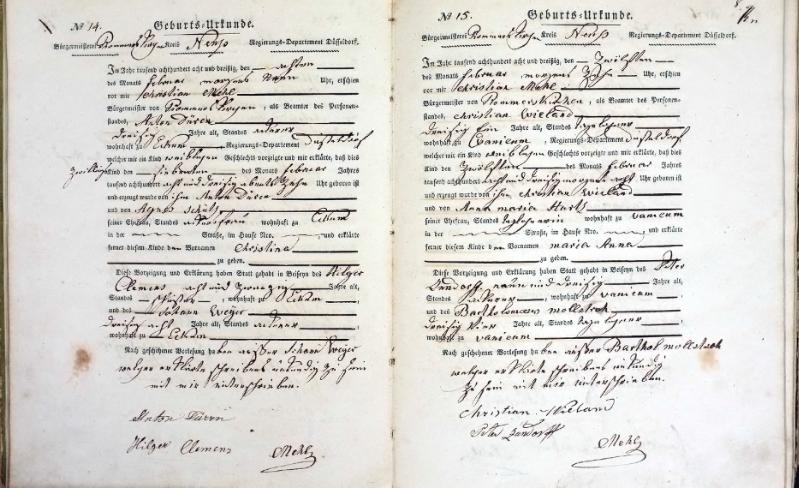 № 14. Geburts-Urkunde.
Bürgermeisterei Kreis Neuß Regierungs-Departement Düsseldorf.
Im Jahr tausend achthundert acht und dreißig, den achten
des Monats Februar morgens Uhr, erschien
vor mir Christian Mehl
Bürgermeister von, als Beamter des Personen-
standes, Anton Düren
dreißig Jahre alt, Standes Ackerer
wohnhaft zu Eckum, Regierungs-Departement Düsseldorf
welcher mir ein Kind weiblichen Geschlechts vorzeigte und mir erklärte, daß dies
Kind den siebenten des Monats Februar Jahres
tausend achthundert acht und dreißig abends zehn Uhr geboren ist
und erzeugt wurde von ihm Anton Düren
und von Agnes Schütz
seiner Ehefrau, Standes wohnhaft zu Eckum
in der Straße, im Hause Nro. , und erklärte
ferner diesem Kinde den Vornamen Christina
zu geben.
Diese Vorzeigung und Erklärung haben Statt gehabt in Beiseyn des Hilger
Clemens acht und zwanzig Jahre alt,
Standes, wohnhaft zu Eckum,
und des Johann Weyer
dreißig acht Jahre alt, Standes Ackerer
wohnhaft zu Eckum
Nach geschehener Vorlesung haben außer Johann Weyer
welcher erklärte schreibens unkundig zu sein
mit mir unterschrieben.
Anton Düren
Hilger Clemens
Mehl
№ 15. Geburts-Urkunde.
Bürgermeisterei Kreis Neuß Regierungs-Departement Düsseldorf.
Im Jahr tausend achthundert acht und dreißig, den zwölften
des Monats Februar morgens zehn Uhr, erschien
vor mir Christian Mehl
Bürgermeister von Rommerskirchen, als Beamter des Personen-
standes, Christian Wieland
dreißig ein Jahre alt, Standes Taglöhner
wohnhaft zu Vanicum, Regierungs-Departement Düsseldorf
welcher mir ein Kind weiblichen Geschlechts vorzeigte und mir erklärte, daß dies
Kind den zwölften des Monats Februar Jahres
tausend achthundert acht und dreißig morgens acht Uhr geboren ist
und erzeugt wurde von ihm Christian Wieland
und von Anna Maria
seiner Ehefrau, Standes Taglöhnerin wohnhaft zu Vanicum
in der Straße, im Hause Nro. , und erklärte
ferner diesem Kinde den Vornamen Maria Anna
zu geben.
Diese Vorzeigung und Erklärung haben Statt gehabt in Beiseyn des Peter
neun und dreißig Jahre alt,
Standes Ackerer, wohnhaft zu Vanicum,
und des Bartholomeus
dreißig vier Jahre alt, Standes Taglöhner
wohnhaft zu Vanicum
Nach geschehener Vorlesung haben außer Barthol
welcher erklärte schreibens unkundig
zu sein mit mir unterschrieben.
Christian Wieland
Peter
Mehl